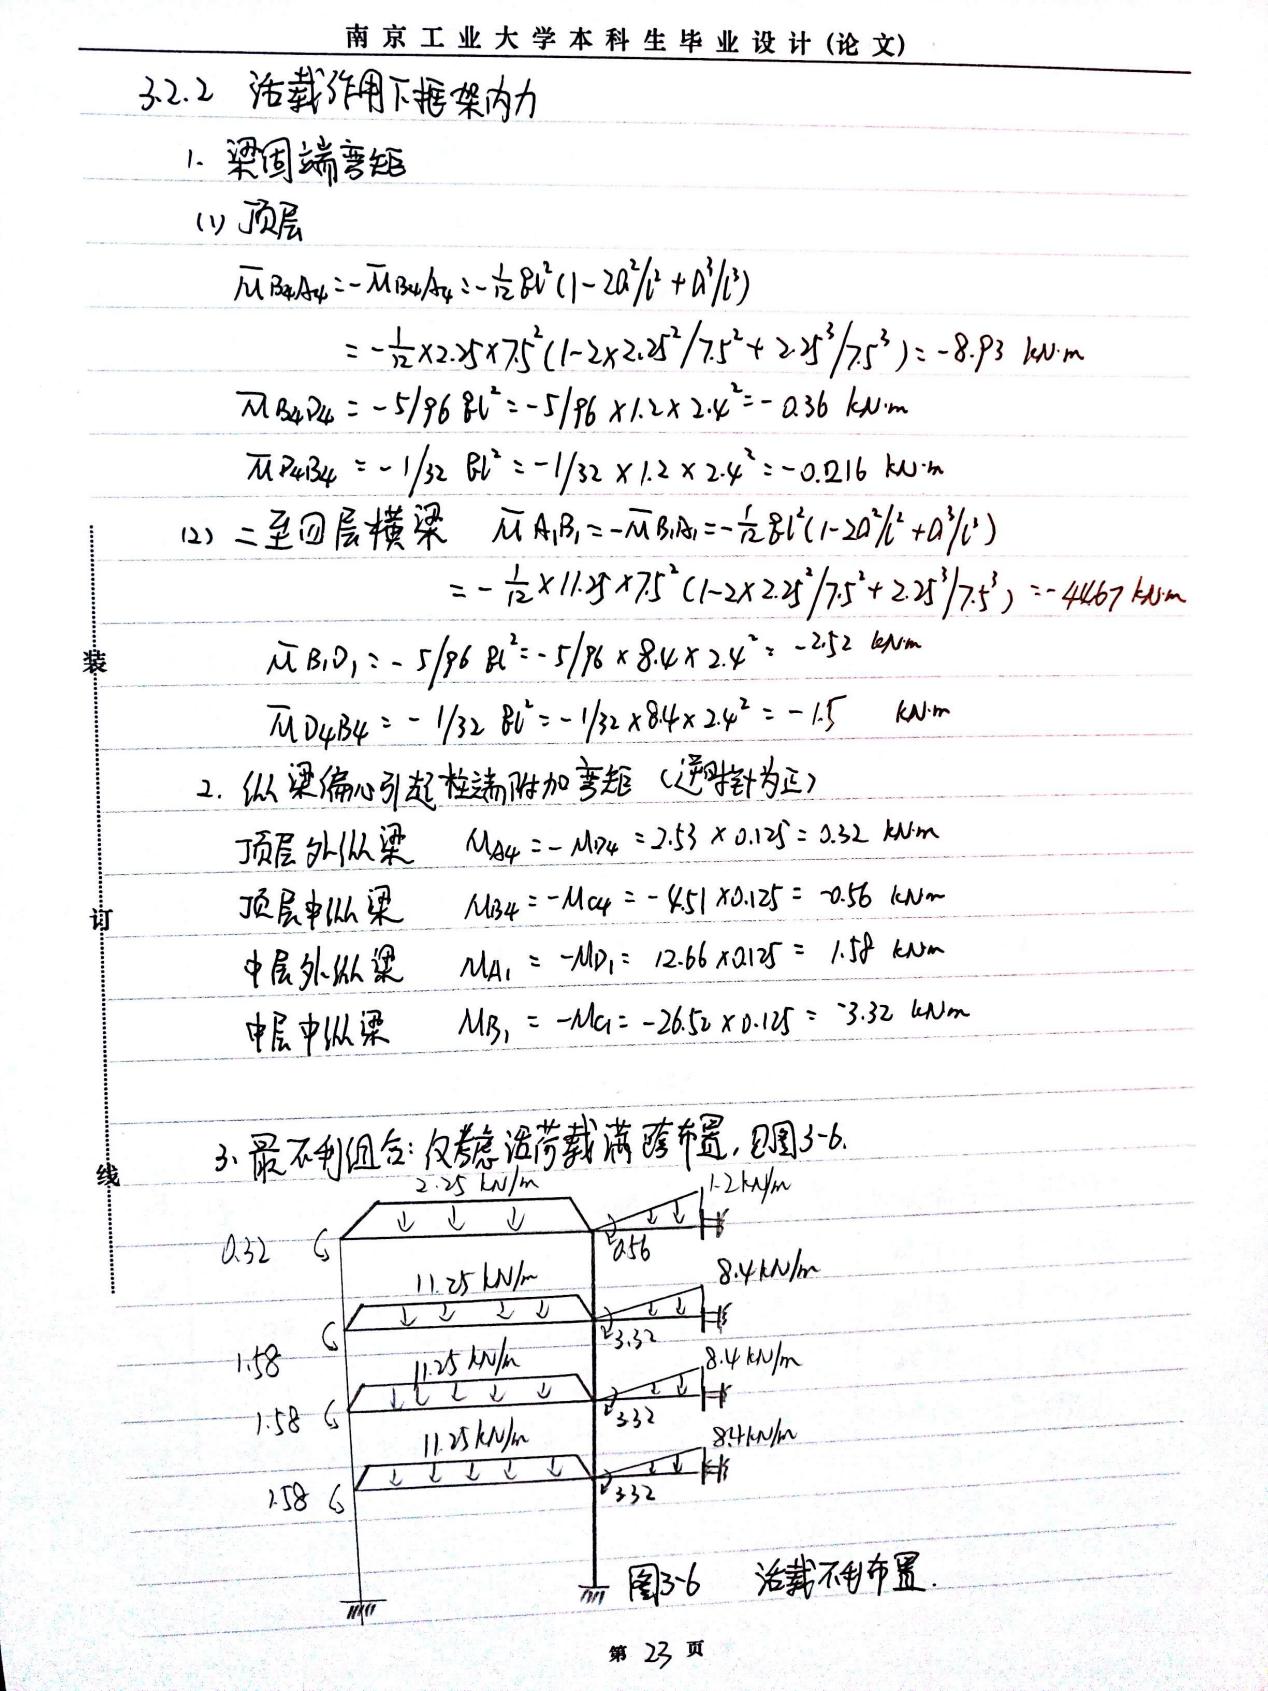 南京工业大学本科生毕业设计(论文)
3.2.2 活载作用下框架内力
1. 梁固端弯矩
(1) 顶层
M̅B4A4=-M̅B4A4=-1/12 gl²(1-2a²/l²+a³/l³)
=-1/12×2.25×7.5²(1-2×2.25²/7.5²+2.25³/7.5³)=-8.93 kN·m
M̅B4D4=-5/96 gl²=-5/96×1.2×2.4²=-0.36 kN·m
M̅D4B4=-1/32 gl²=-1/32×1.2×2.4²=-0.216 kN·m
(2) 二至四层横梁 M̅A1B1=-M̅B1A1=-1/12 gl²(1-2a²/l²+a³/l³)
=-1/12×11.25×7.5²(1-2×2.25²/7.5²+2.25³/7.5³)=-44.67 kN·m
M̅B1D1=-5/96 gl²=-5/96×8.4×2.4²=-2.52 kN·m
M̅D4B4=-1/32 gl²=-1/32×8.4×2.4²=-1.5 kN·m
2. 纵梁偏心引起柱端附加弯矩(逆时针为正)
顶层外纵梁 MA4=-MD4=2.53×0.125=0.32 kN·m
顶层中纵梁 MB4=-MC4=-4.51×0.125=-0.56 kN·m
中层外纵梁 MA1=-MD1=12.66×0.125=1.58 kN·m
中层中纵梁 MB1=-MC1=-26.52×0.125=-3.32 kN·m
3. 最不利组合:仅考虑活荷载满跨布置,见图3-6.
2.25 kN/m 1.2kN/m
0.32 0.56
11.25 kN/m 8.4kN/m
1.58 3.32
11.25 kN/m 8.4 kN/m
1.58 3.32
11.25kN/m 8.4kN/m
1.58 3.32
图3-6 活载不利布置.
第 23 页
装
订
线